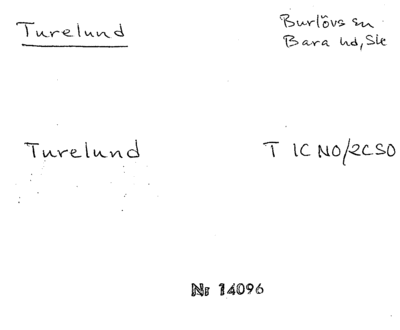 Turelund
Burlövs sn
Bara hd, Ske
Turelund
T 1C NO/2C SO
Nr 14096